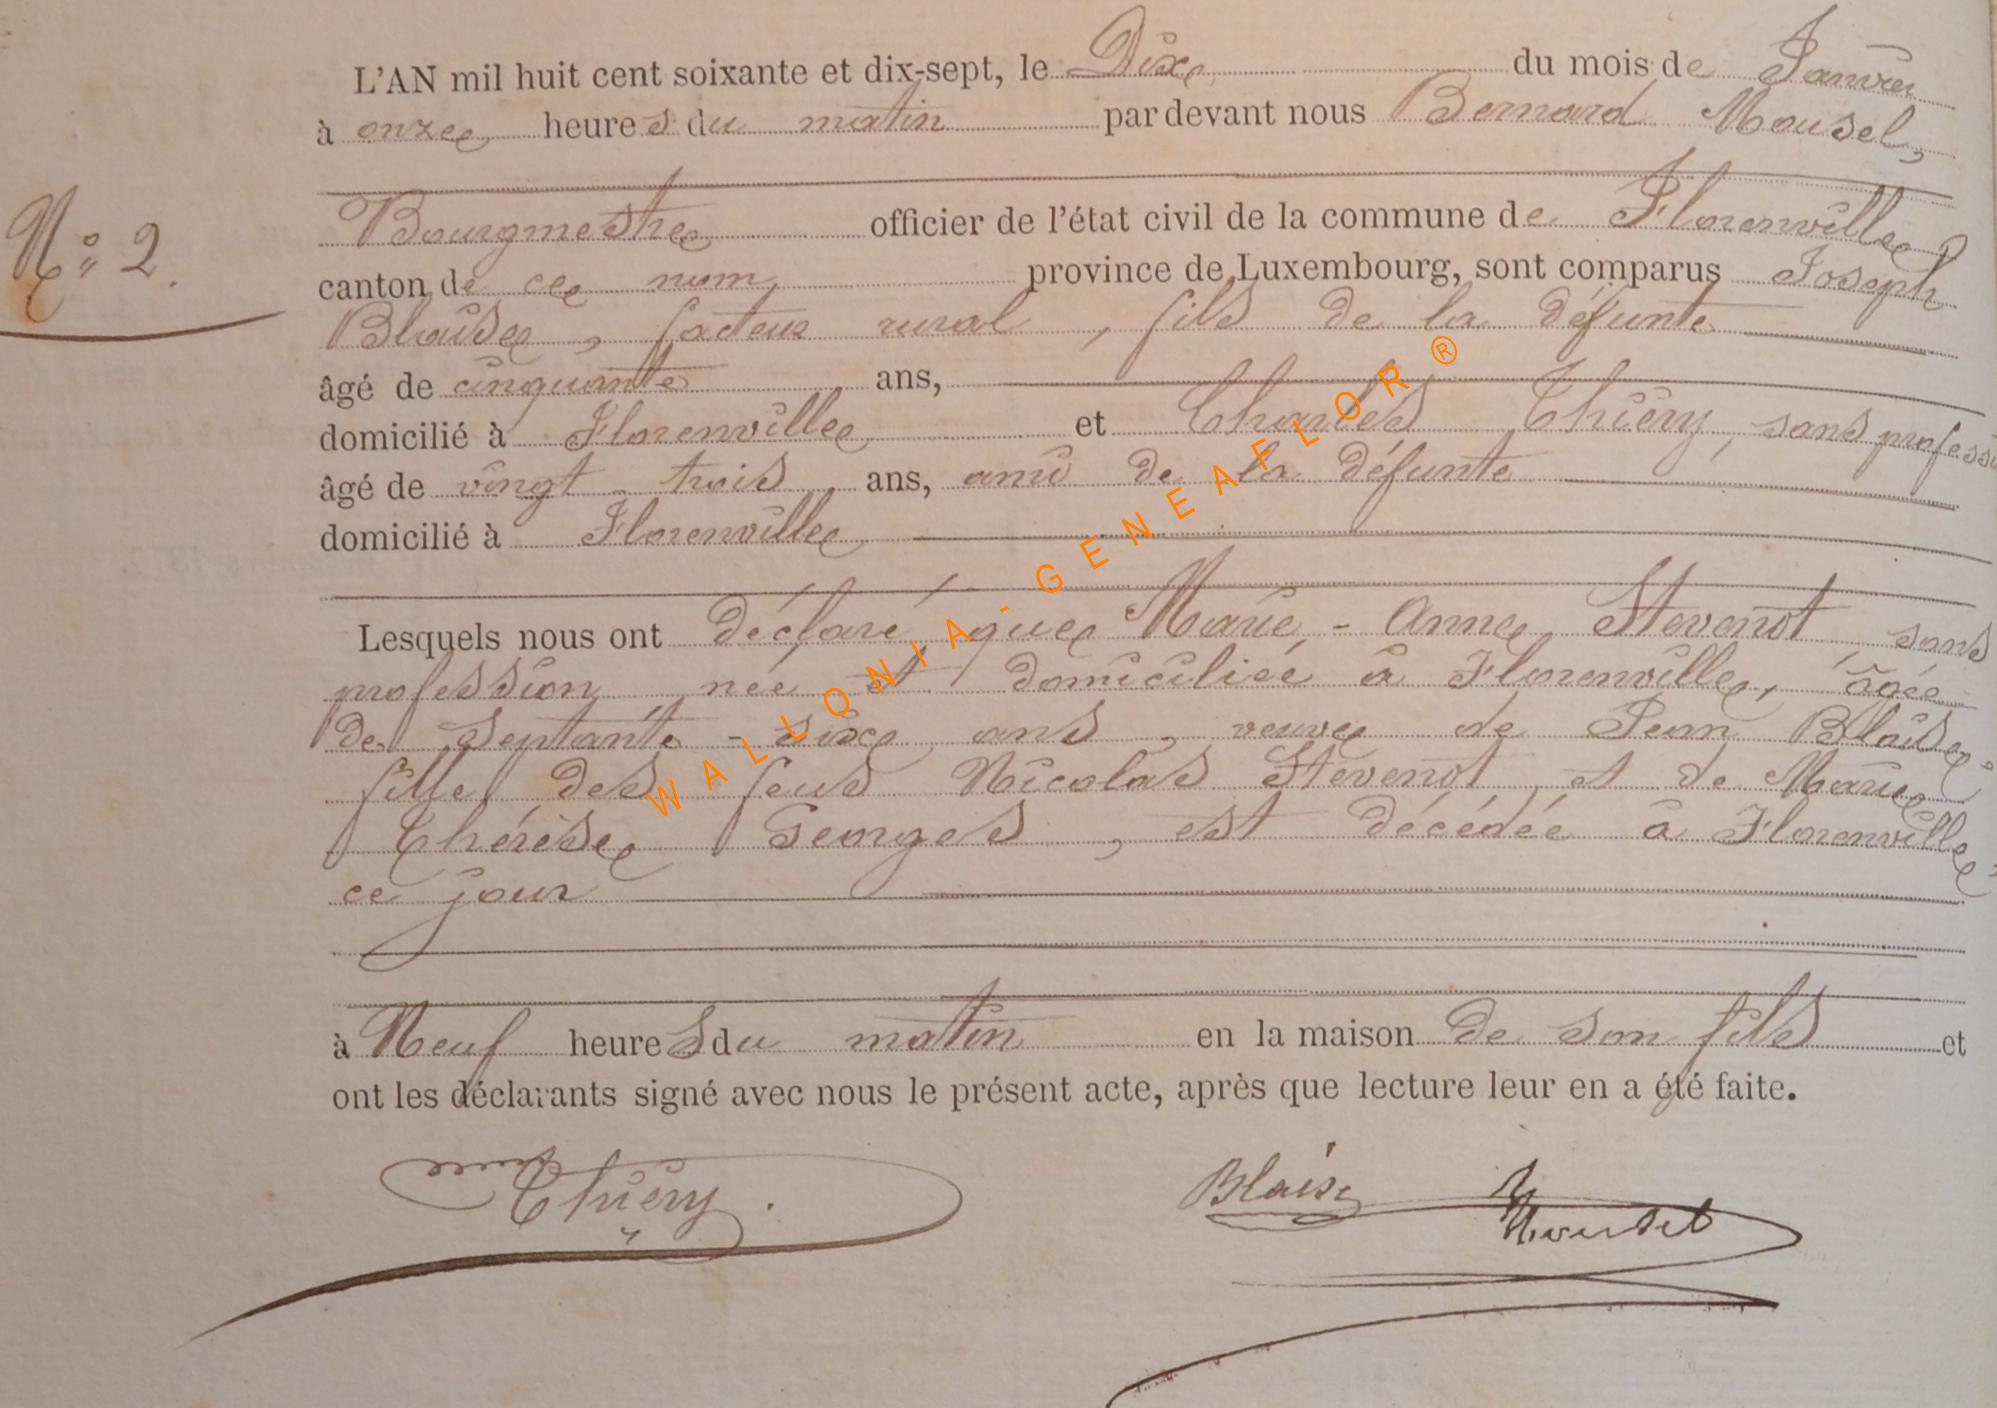 L'AN mil huit cent soixante et dix-sept, le Dix du mois de Janvier
à onze heures du matin par devant nous Bernard Mousel,
Bourgmestre officier de l'état civil de la commune de Florenville,
N° 2.
canton de ce nom, province de Luxembourg, sont comparus Joseph
Blaise, facteur rural, fils de la défunte
âgé de cinquante ans,
domicilié à Florenville et Charles Thiéry, sans professi
âgé de vingt-trois ans, ami de la défunte
domicilié à Florenville
Lesquels nous ont déclaré que Marie-Anne Stevenot sans
profession née et domiciliée à Florenville, âgée
de septante-six ans, veuve de Jean Blaise,
fille des feus Nicolas Stevenot et de Marie
Thérèse Georges, est décédée à Florenville,
ce jour
à Neuf heures du matin en la maison de son fils et
ont les déclarants signé avec nous le présent acte, après que lecture leur en a été faite.
Thiéry. Blaise Mousel
WALLONIA-GENEAFLOR®